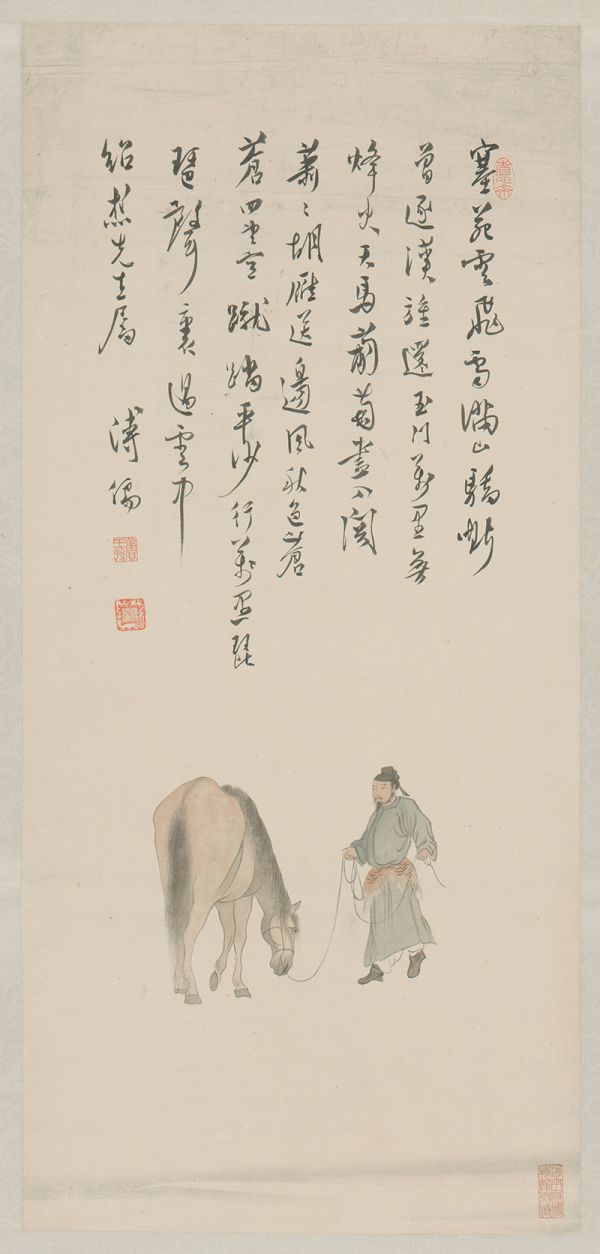 塞苑雲飛雪滿山驕嘶
曾逐漢旌還玉門萬里無
烽火天馬葡萄盡入關
蕭〻胡雁送邊風秋色蒼
蒼四望空蹴踏平沙行萬里琵
琶聲裏過雲中
紹杰先生屬
溥儒